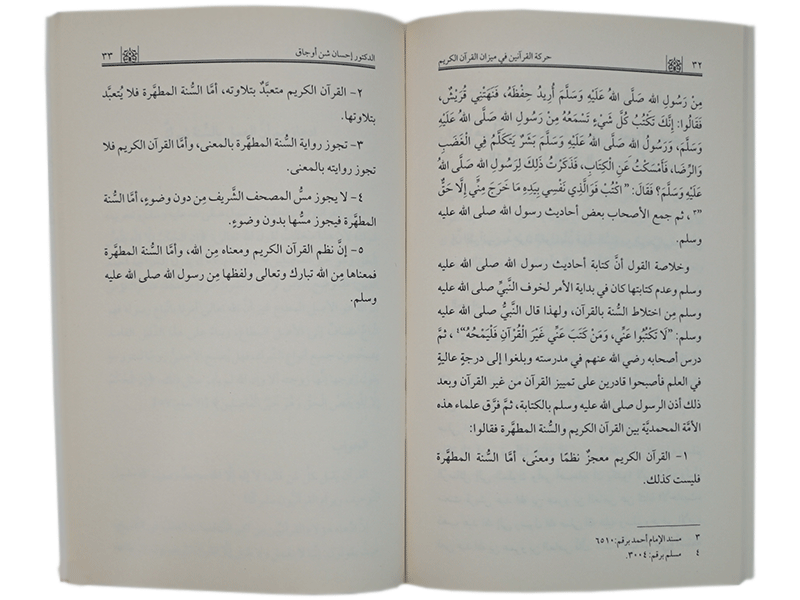 ٣٢ حركة القرآنيين في ميزان القرآن الكريم
مِنْ رَسُولِ الله صَلَّى اللهُ عَلَيْهِ وَسَلَّمَ أُرِيدُ حِفْظَهُ، فَنَهَتْنِي قُرَيْشٌ،
فَقَالُوا: إِنَّكَ تَكْتُبُ كُلَّ شَيْءٍ تَسْمَعُهُ مِنْ رَسُولِ الله صَلَّى اللهُ عَلَيْهِ
وَسَلَّمَ، وَرَسُولُ الله صَلَّى اللهُ عَلَيْهِ وَسَلَّمَ بَشَرٌ يَتَكَلَّمُ فِي الْغَضَبِ
وَالرِّضَا، فَأَمْسَكْتُ عَنِ الْكِتَابِ، فَذَكَرْتُ ذَلِكَ لِرَسُولِ الله صَلَّى اللهُ
عَلَيْهِ وَسَلَّمَ؟ فَقَالَ: "اكْتُبْ فَوَالَّذِي نَفْسِي بِيَدِهِ مَا خَرَجَ مِنِّي إِلَّا حَقٌّ
"٣، ثم جمع الأصحاب بعض أحاديث رسول الله صلى الله عليه
وسلم.
وخلاصة القول أنَّ كتابة أحاديث رسول الله صلى الله عليه
وسلم وعدم كتابتها كان في بداية الأمر لخوف النَّبيِّ صلى الله عليه
وسلم مِن اختلاط السُّنة بالقرآن، ولهذا قال النَّبيُّ صلى الله عليه
وسلم: "لَا تَكْتُبُوا عَنِّي، وَمَنْ كَتَبَ عَنِّي غَيْرَ الْقُرْآنِ فَلْيَمْحُهُ"٤، ثمَّ
درس أصحابه رضي الله عنهم في مدرسته وبلغوا إلى درجةٍ عاليةٍ
في العلم فأصبحوا قادرين على تمييز القرآن من غير القرآن وبعد
ذلك أذن الرسول صلى الله عليه وسلم بالكتابة، ثمَّ فرَّق علماء هذه
الأمَّة المحمديَّة بين القرآن الكريم والسُّنة المطهَّرة فقالوا:
١- القرآن الكريم معجزٌ نظمًا ومعنًى، أمَّا السُّنة المطهَّرة
فليست كذلك.
٣ مسند الإمام أحمد برقم: ٦٥١٠.
٤ مسلم برقم: ٣٠٠٤.
الدكتور إحسان شن أوجاق ٣٣
٢- القرآن الكريم متعبَّدٌ بتلاوته، أمَّا السُّنة المطهَّرة فلا يُتعبَّد
بتلاوتها.
٣- تجوز رواية السُّنة المطهَّرة بالمعنى، وأمَّا القرآن الكريم فلا
تجوز روايته بالمعنى.
٤- لا يجوز مسُّ المصحف الشَّريف مِن دون وضوءٍ، أمَّا السُّنة
المطهَّرة فيجوز مسُّها بدون وضوءٍ.
٥- إنَّ نظم القرآن الكريم ومعناه مِن الله، وأمَّا السُّنة المطهَّرة
فمعناها مِن الله تبارك وتعالى ولفظها مِن رسول الله صلى الله عليه
وسلم.